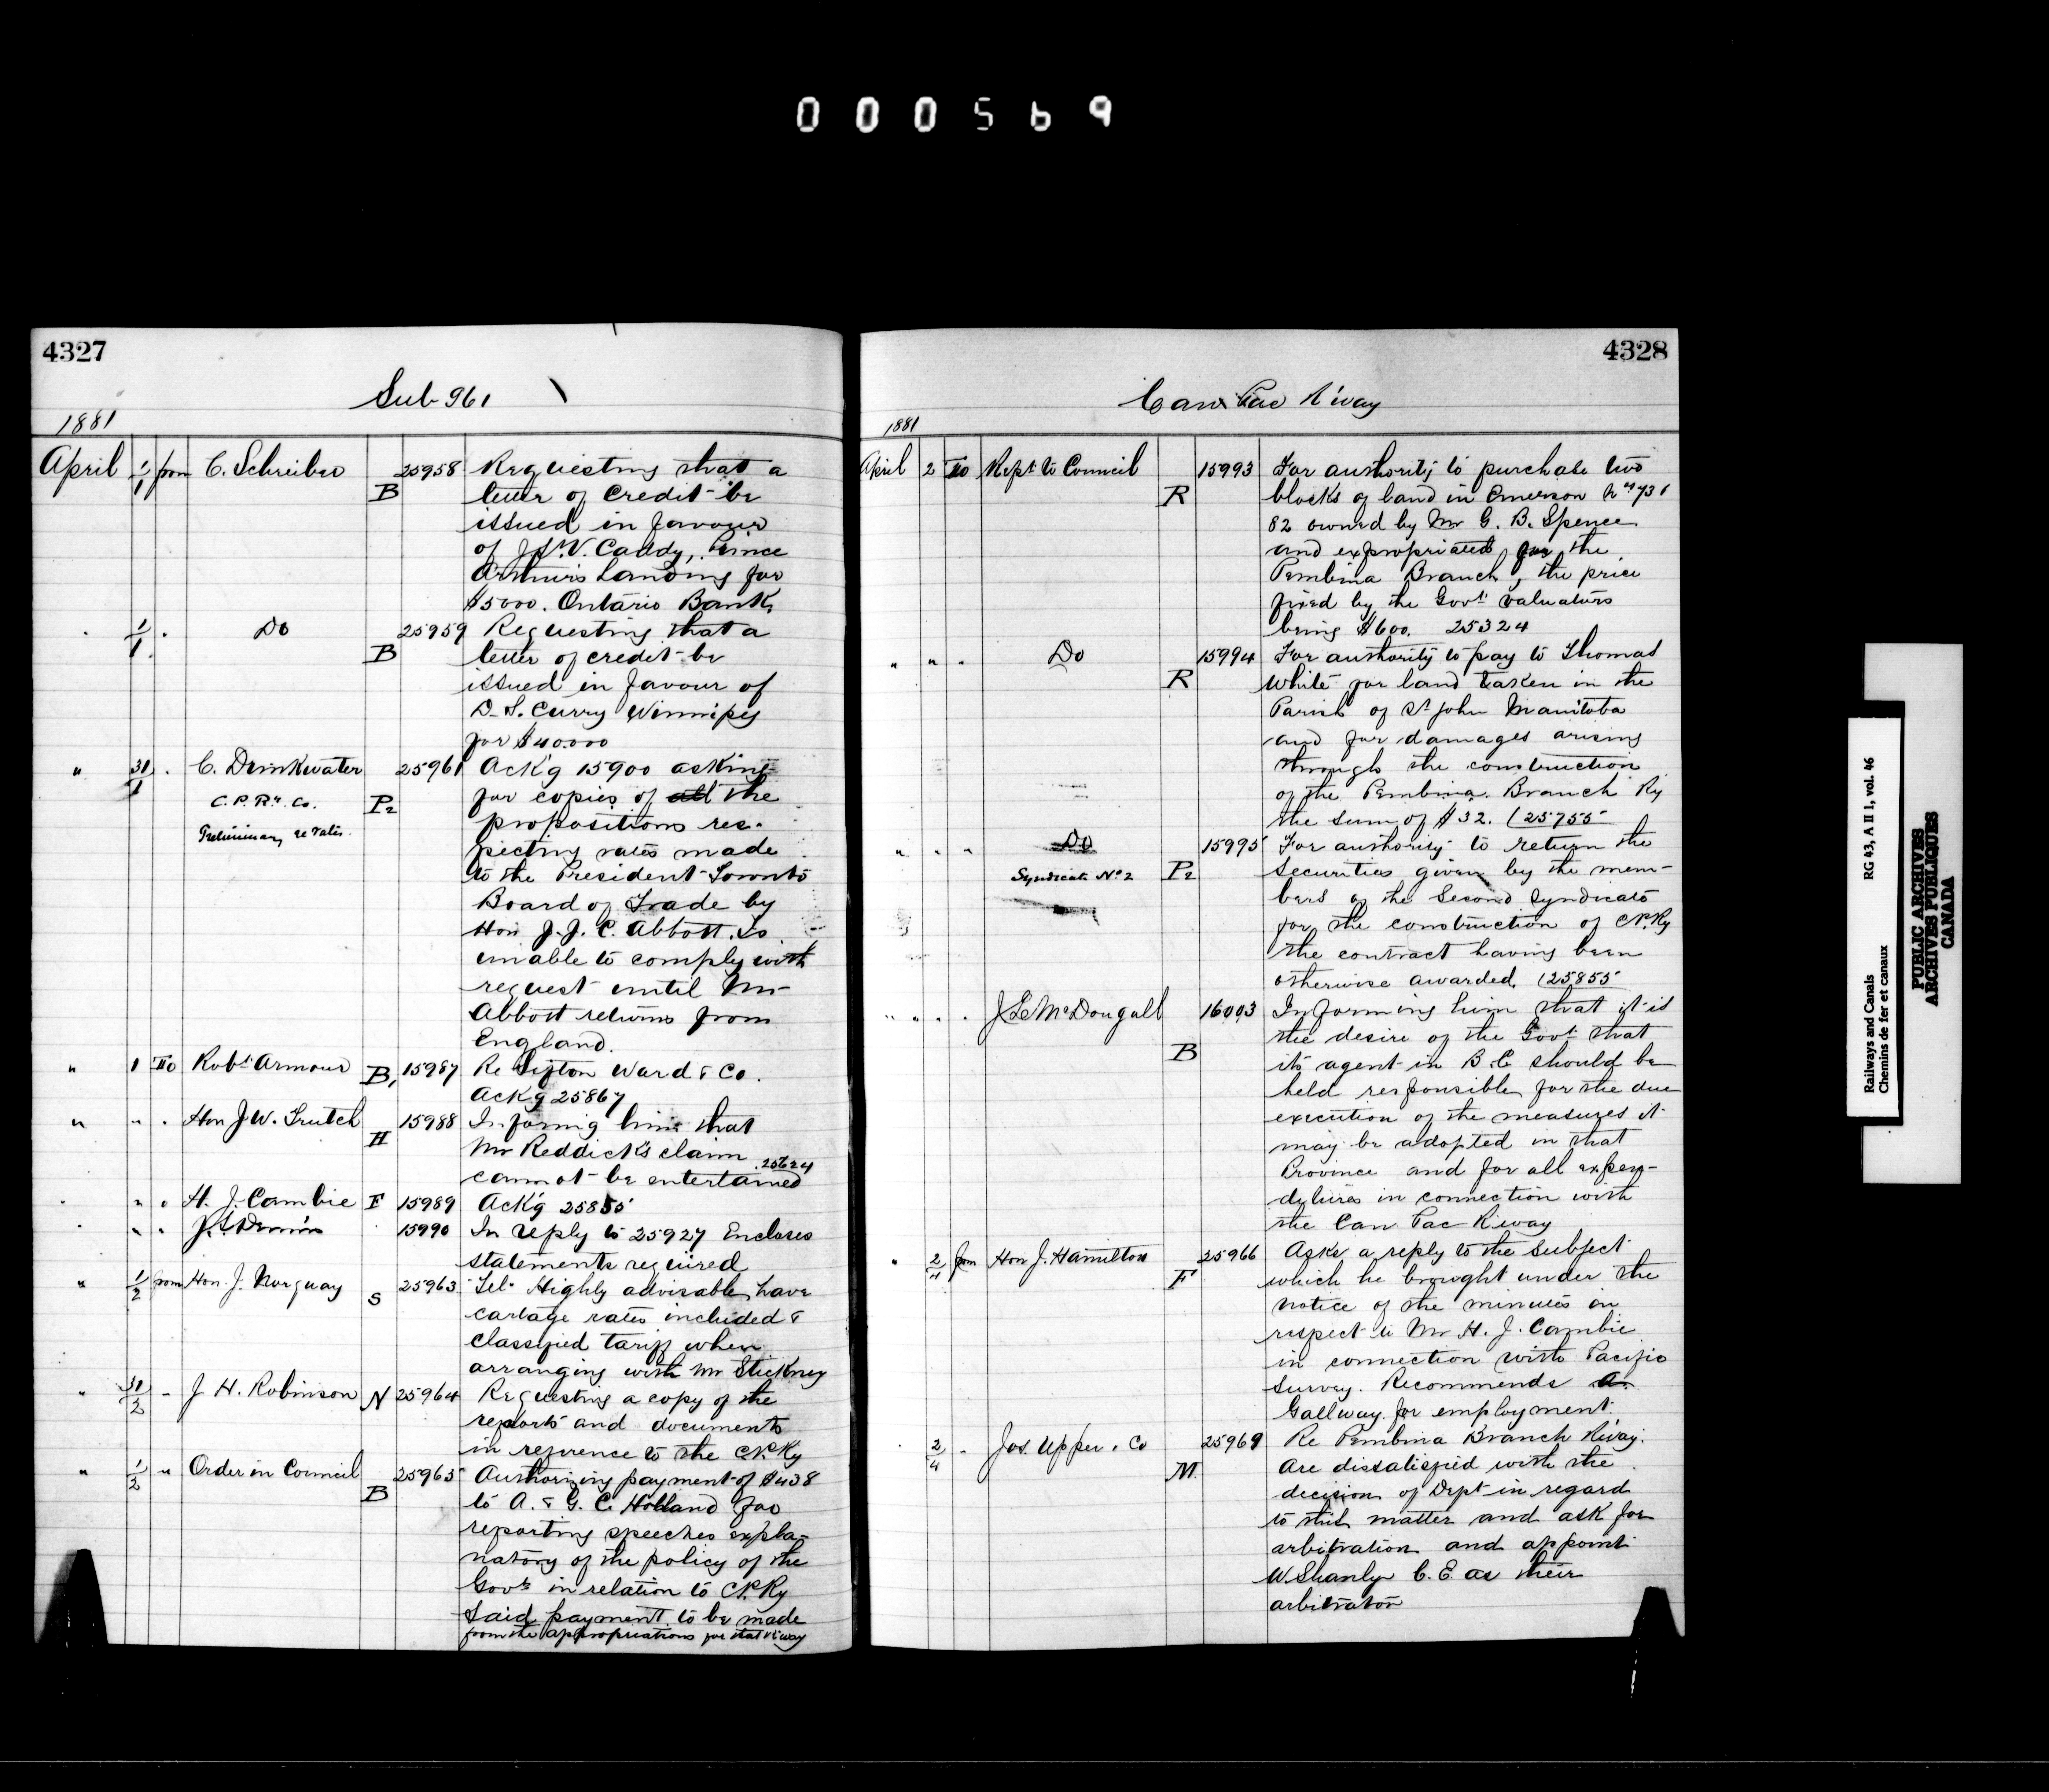 000569
4327
Sub 961
1881
April 1/1 from C. Schreiber B 25958 Requesting that a
letter of credit be
issued in favour
of J. W. Caddy, Prince
Arthur's Landing for
$5000. Ontario Bank
" 1/1 " Do B 25959 Requesting that a
letter of credit be
issued in favour of
D. S. Curry Winnipeg
for $40.000
" 31/1 " C. Drinkwater 25961 Ack'g 15900 asking
C. P. Ry. Co. P2 for copies of all the
Preliminary re rates propositions res-
pecting rates made
to the President Toronto
Board of Trade by
Hon J. J. C. Abbott. Is
unable to comply with
request until Mr
Abbott returns from
England.
" 1 To Robt Armour B, 15987 Re Sifton Ward & Co.
Ackg 25867
" " " Hon J. W. Trutch H 15988 Informing him that
Mr Reddick's claim
cannot be entertained 25624
" " H. J. Cambie F 15989 Ack'g 25855
" " 15990 In reply to 25927 Encloses
statements required
" 1/2 from Hon. J. Norquay S 25963 Tel. Highly advisable have
cartage rates included &
classified tariff when
arranging with Mr Stickney
" 31/2 " J H. Robinson N 25964 Requesting a copy of the
reports and documents
in reference to the CP.Ry
" 1/2 " Order in Council B 25965 Authorizing payment of $438
to A. & G. C. Holland for
reporting speeches expla-
natory of the policy of the
Govt in relation to CP.Ry
Said payment to be made
from the appropriations for that R'way
4328
Can Pac R'way
1881
April 2 To Rept to Council R 15993 For authority to purchase two
blocks of land in Emerson
82 owned by Mr G. B. Spence
and expropriated for the
Pembina Branch, the price
fixed by the Govt valuators
being $600. 25324
" " " Do R 15994 For authority to pay to Thomas
White for land taken in the
Parish of St John Manitoba
and for damages arising
through the construction
of the Pembina Branch Ry
the sum of $32. (25755
" " " Do 15995 For authority to return the
Syndicate No 2 P2 securities given by the mem-
bers of the Second Syndicate
for the construction of CP.Ry
the contract having been
otherwise awarded. (25855
" " " J L McDougall B 16003 Informing him that it is
the desire of the Govt that
its agent in B.C should be
held responsible for the due
execution of the measures it
may be adopted in that
Province and for all expen-
ditures in connection with
the Can Pac R'way
" 2/4 from Hon J. Hamilton F 25966 Asks a reply to the subject
which he brought under the
notice of the minutes in
respect to Mr H. J. Cambie
in connection with Pacific
Survey. Recommends A.
Gallway for employment.
" 2/4 " Jos. Upper & Co M 25969 Re Pembina Branch R'way.
Are dissatisfied with the
decision of Dept in regard
to this matter and ask for
arbitration and appoint
W Shanly C. E. as their
arbitrator
Railways and Canals RG 43, A II 1, vol. 46
Chemins de fer et canaux
PUBLIC ARCHIVES
ARCHIVES PUBLIQUES
CANADA